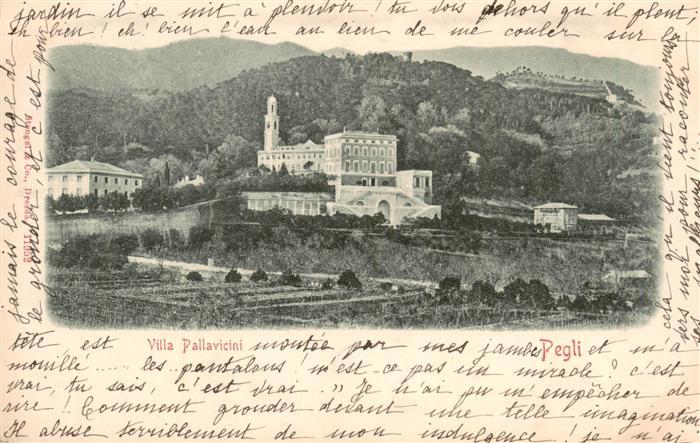 jardin il se mit à pleuvoir! tu vois dehors qu'il pleut
eh bien! eh bien! l'eau au lien de me couler sur la
tête est montée par mes jambes et m'a
mouillé..... les pantalons! n'est-ce pas un miracle? c'est
vrai, tu sais, c'est vrai." Je n'ai pu m'empêcher de
rire! Comment gronder devant une telle imagination
Il abuse terriblement de mon indulgence! je n'ai
jamais le courage de
le gronder et c'est pour
cela qu'il vient toujours
vers moi pour raconter
Villa Pallavicini
Pegli
Stengel & Co., Dresden 11958